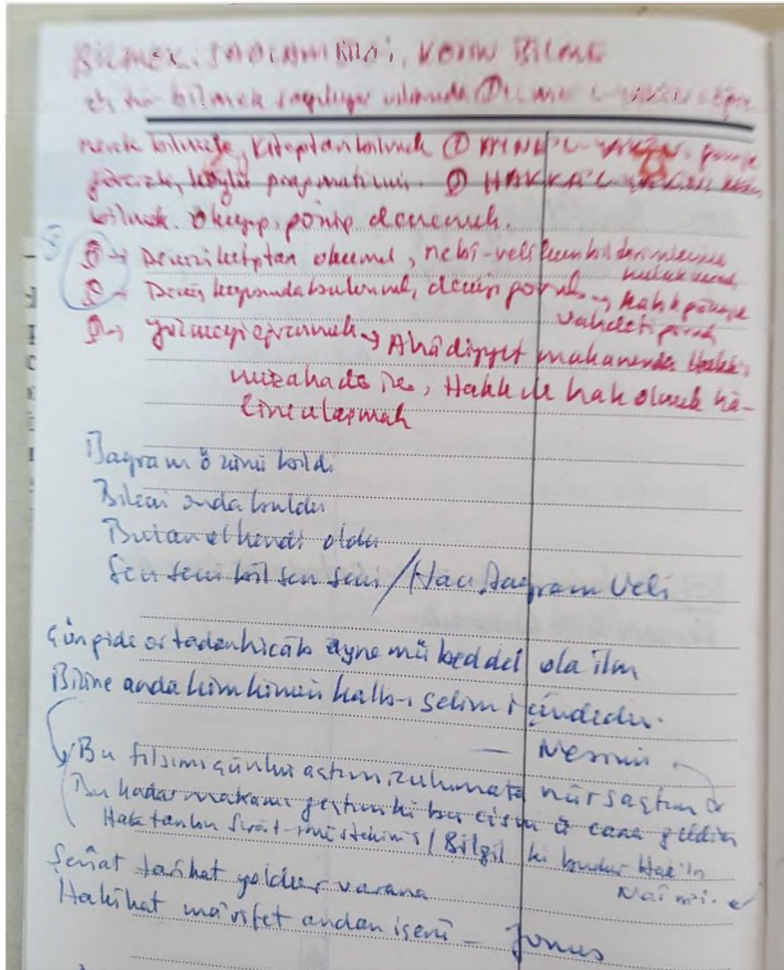 BİLMEK: SAĞLAM BİLGİ, KESİN BİLME
bilmek ① İLME'L-YAKİN
bilmek, kitaptan bilmek ② AYNE'L-YAKİN
görerek, ③ HAKKA'L-YAKİN
bilmek. Okuyup, görüp denemek.
① → Denizi kitaptan okumak, nebi-veli
② → Deniz kıyısında bulunmak, denizi görmek → Hakk
vahdeti
③ → Yüzmeyi öğrenmek → Ahâdiyyet makamında Hakk'ı
müşahade ile, Hakk ile hak olmak hâ-
line ulaşmak
Bayram özünü bildi
Bileni anda buldu
Bulan ol kendi oldu
Sen seni bil sen seni / Hacı Bayram Veli
Çün gide ortadan hicâb ayne mübeddel ola ilm
Biline anda kim kimin kalb-i selim içindedir.
— Nesimi
Bu tılsımı çünkü açtım zulumata nûr saçtım
Bu kadar makamı geçtim ki bu cism ü cane geldim
Hak'tan bu Sırât-ı müstekim / Bilgil ki budur Hak'ın
Naimi.
Şeriat tarikat yoldur varana
Hakikat mârifet andan içerü – Yunus